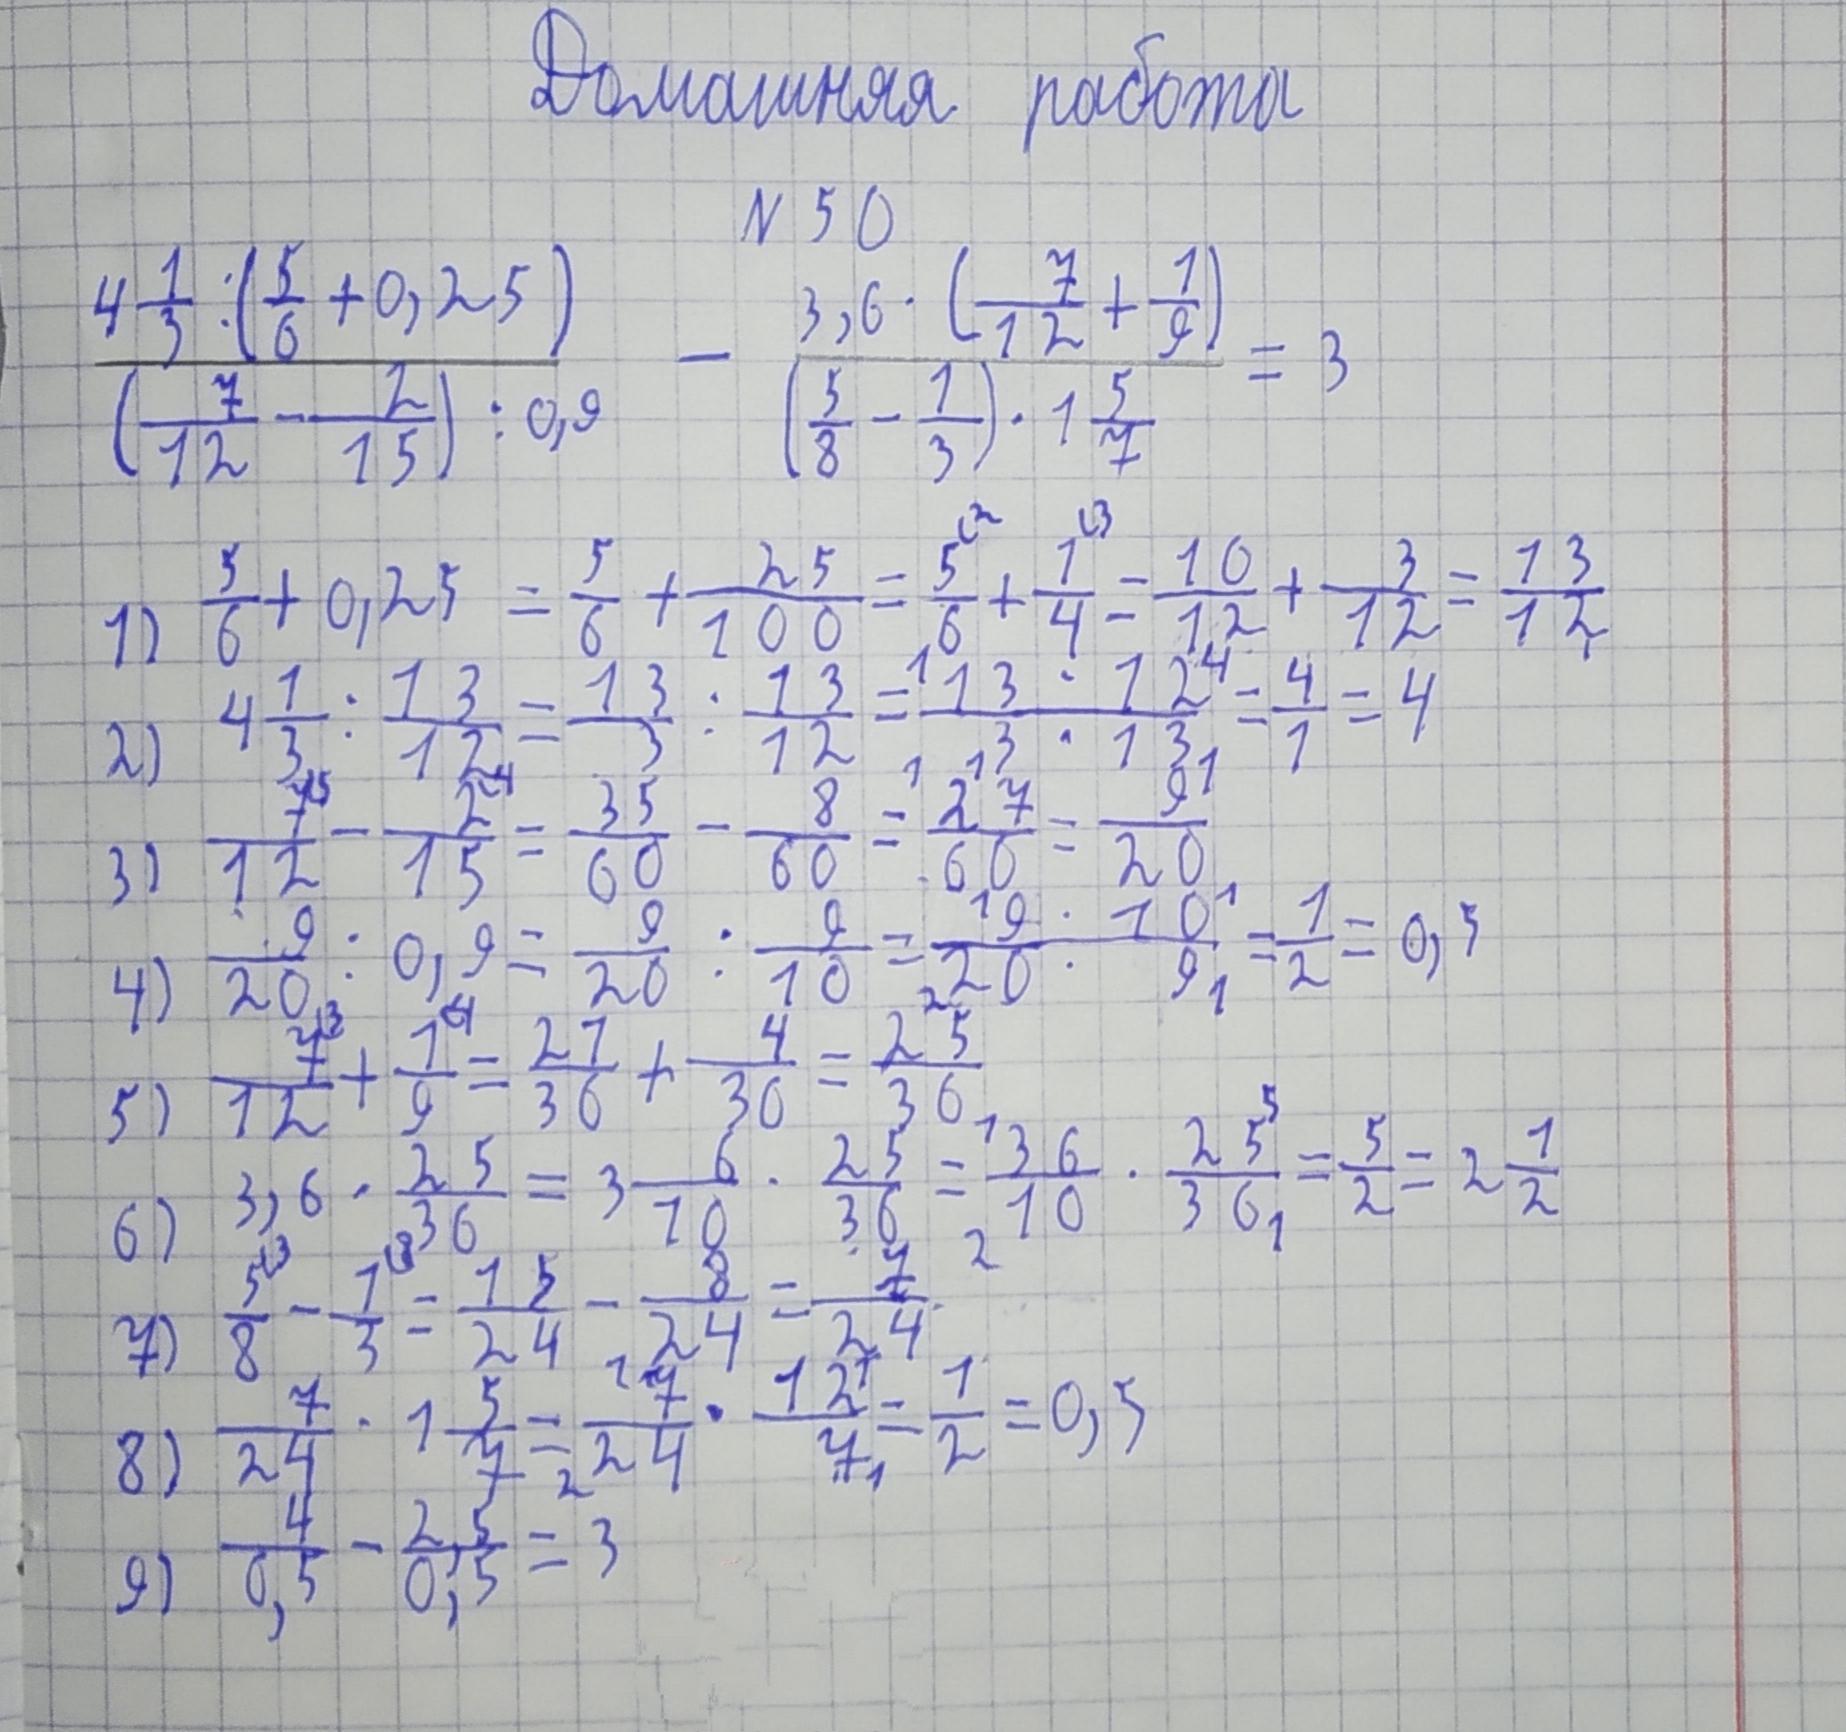 Домашняя работа
N 50
4 1/3 : (5/6 + 0,25) / (7/12 - 2/15) : 0,9 - 3,6 · (7/12 + 1/9) / (5/8 - 1/3) · 1 5/7 = 3
1) 5/6 + 0,25 = 5/6 + 25/100 = 5/6 (2 + 1/4 (3 = 10/12 + 3/12 = 13/12
2) 4 1/3 : 13/12 = 13/3 : 13/12 = 1 13 · 12 4 / 1 3 · 13 1 = 4/1 = 4
3) 7/12 (5 - 2/15 (4 = 35/60 - 8/60 = 27/60 = 9/20
4) 9/20 : 0,9 = 9/20 : 9/10 = 1 9 · 10 1 / 2 20 · 9 1 = 1/2 = 0,5
5) 7/12 (3 + 1/9 (4 = 21/36 + 4/36 = 25/36
6) 3,6 · 25/36 = 3 6/10 · 25/36 = 1 36 / 2 10 · 25 5 / 36 1 = 5/2 = 2 1/2
7) 5/8 (3 - 1/3 (8 = 15/24 - 8/24 = 7/24
8) 7/24 · 1 5/7 = 1 7 / 2 24 · 12 1 / 7 1 = 1/2 = 0,5
9) 4/0,5 - 2,5/0,5 = 3